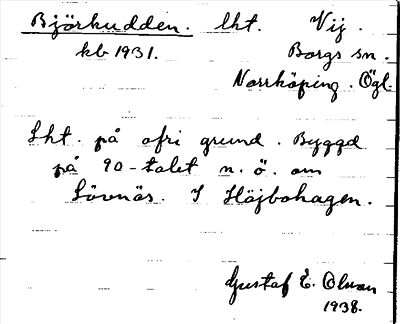 Björkudden. lht. Vij.
kb 1931. Borgs sn.
Norrköping. Ögl.
Lht. på ofri grund. Byggd
på 90-talet n. ö. om
Lövnäs. I Höjbohagen.
Gustaf E. Olsson
1938.